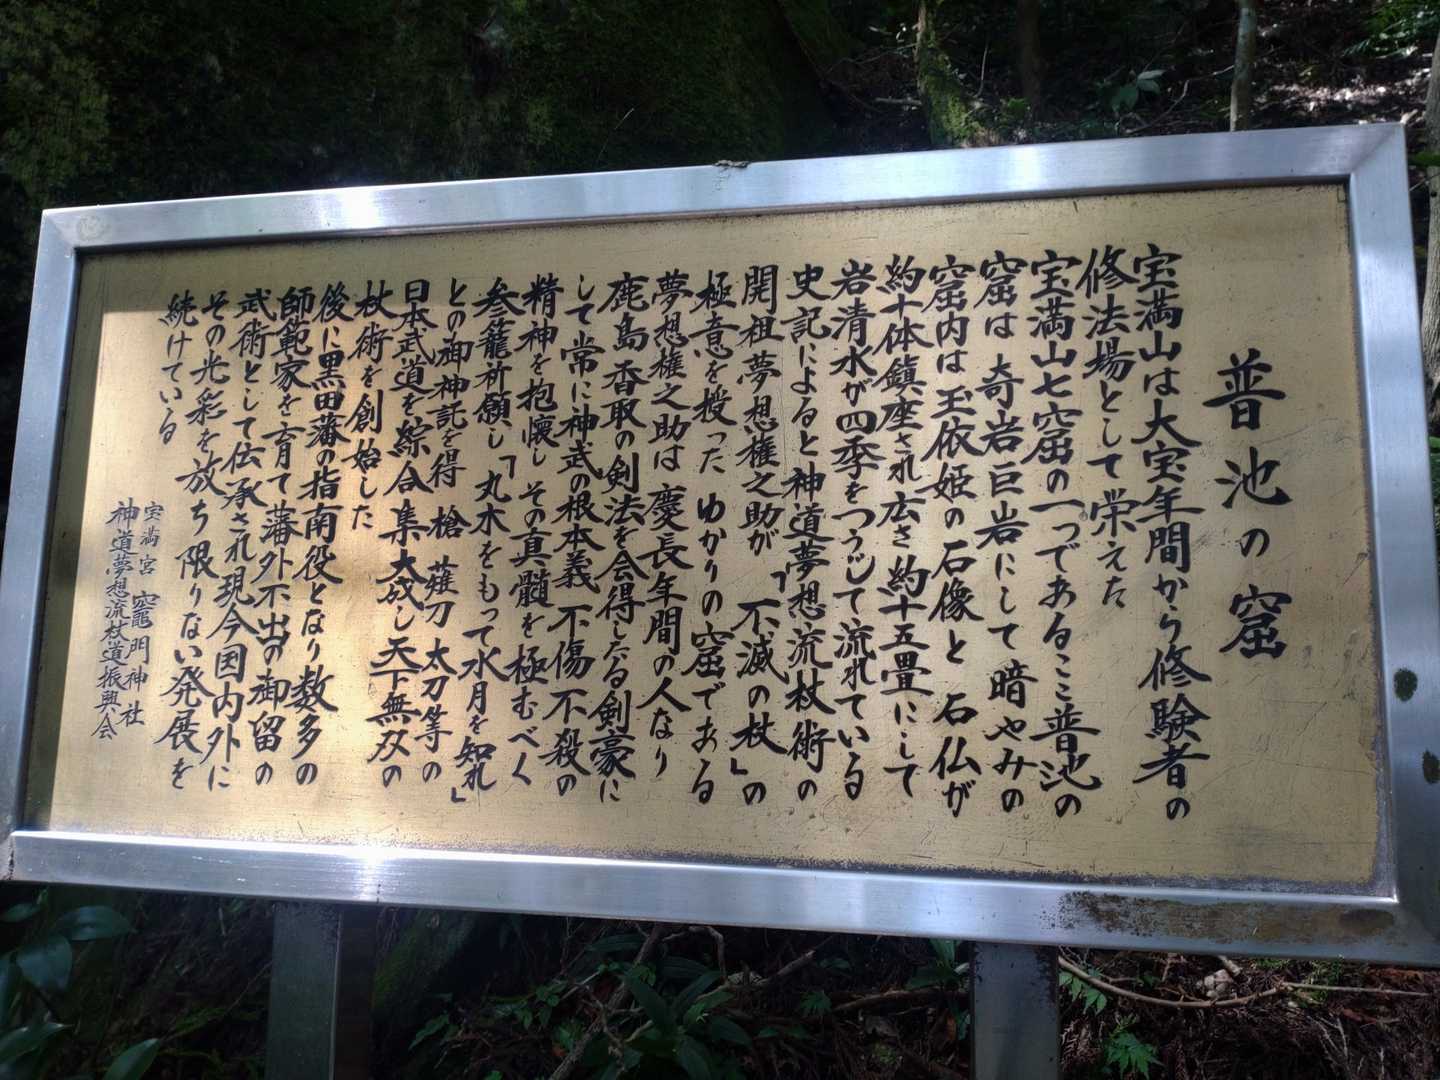 普池の窟
宝満山は大宝年間から修験者の
修法場として栄えた
宝満山七窟の一つであるここ普池の
窟は 奇岩巨岩にして暗やみの
窟内は玉依姫の石像と石仏が
約十体鎮座され広さ約十五畳にして
岩清水が四季をつうじて流れている
史記によると神道夢想流杖術の
開祖夢想権之助が「不滅の杖」の
極意を授った ゆかりの窟である
夢想権之助は慶長年間の人なり
鹿島香取の剣法を会得したる剣豪に
して常に神武の根本義 不傷不殺の
精神を抱懐し その真髄を極むべく
参籠祈願し「丸木をもって水月を知れ」
との御神託を得 槍 薙刀 太刀等の
日本武道を綜合集大成し天下無双の
杖術を創始した
後に黒田藩の指南役となり数多の
師範家を育て藩外不出の御留の
武術として伝承され現今国内外に
その光彩を放ち限りない発展を
続けている
宝満宮 竈門神社
神道夢想流杖道振興会